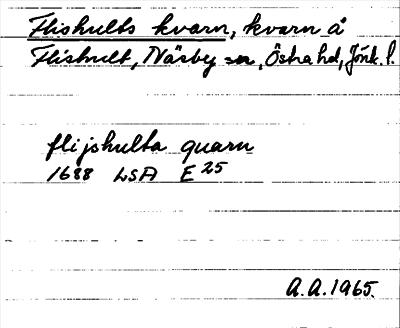 Flishults kvarn, kvarn å
Flishult, Näsby sn, Östra hd, Jönk. l.
flijshulta quarn
1688 LSA E 25
A.A. 1965.